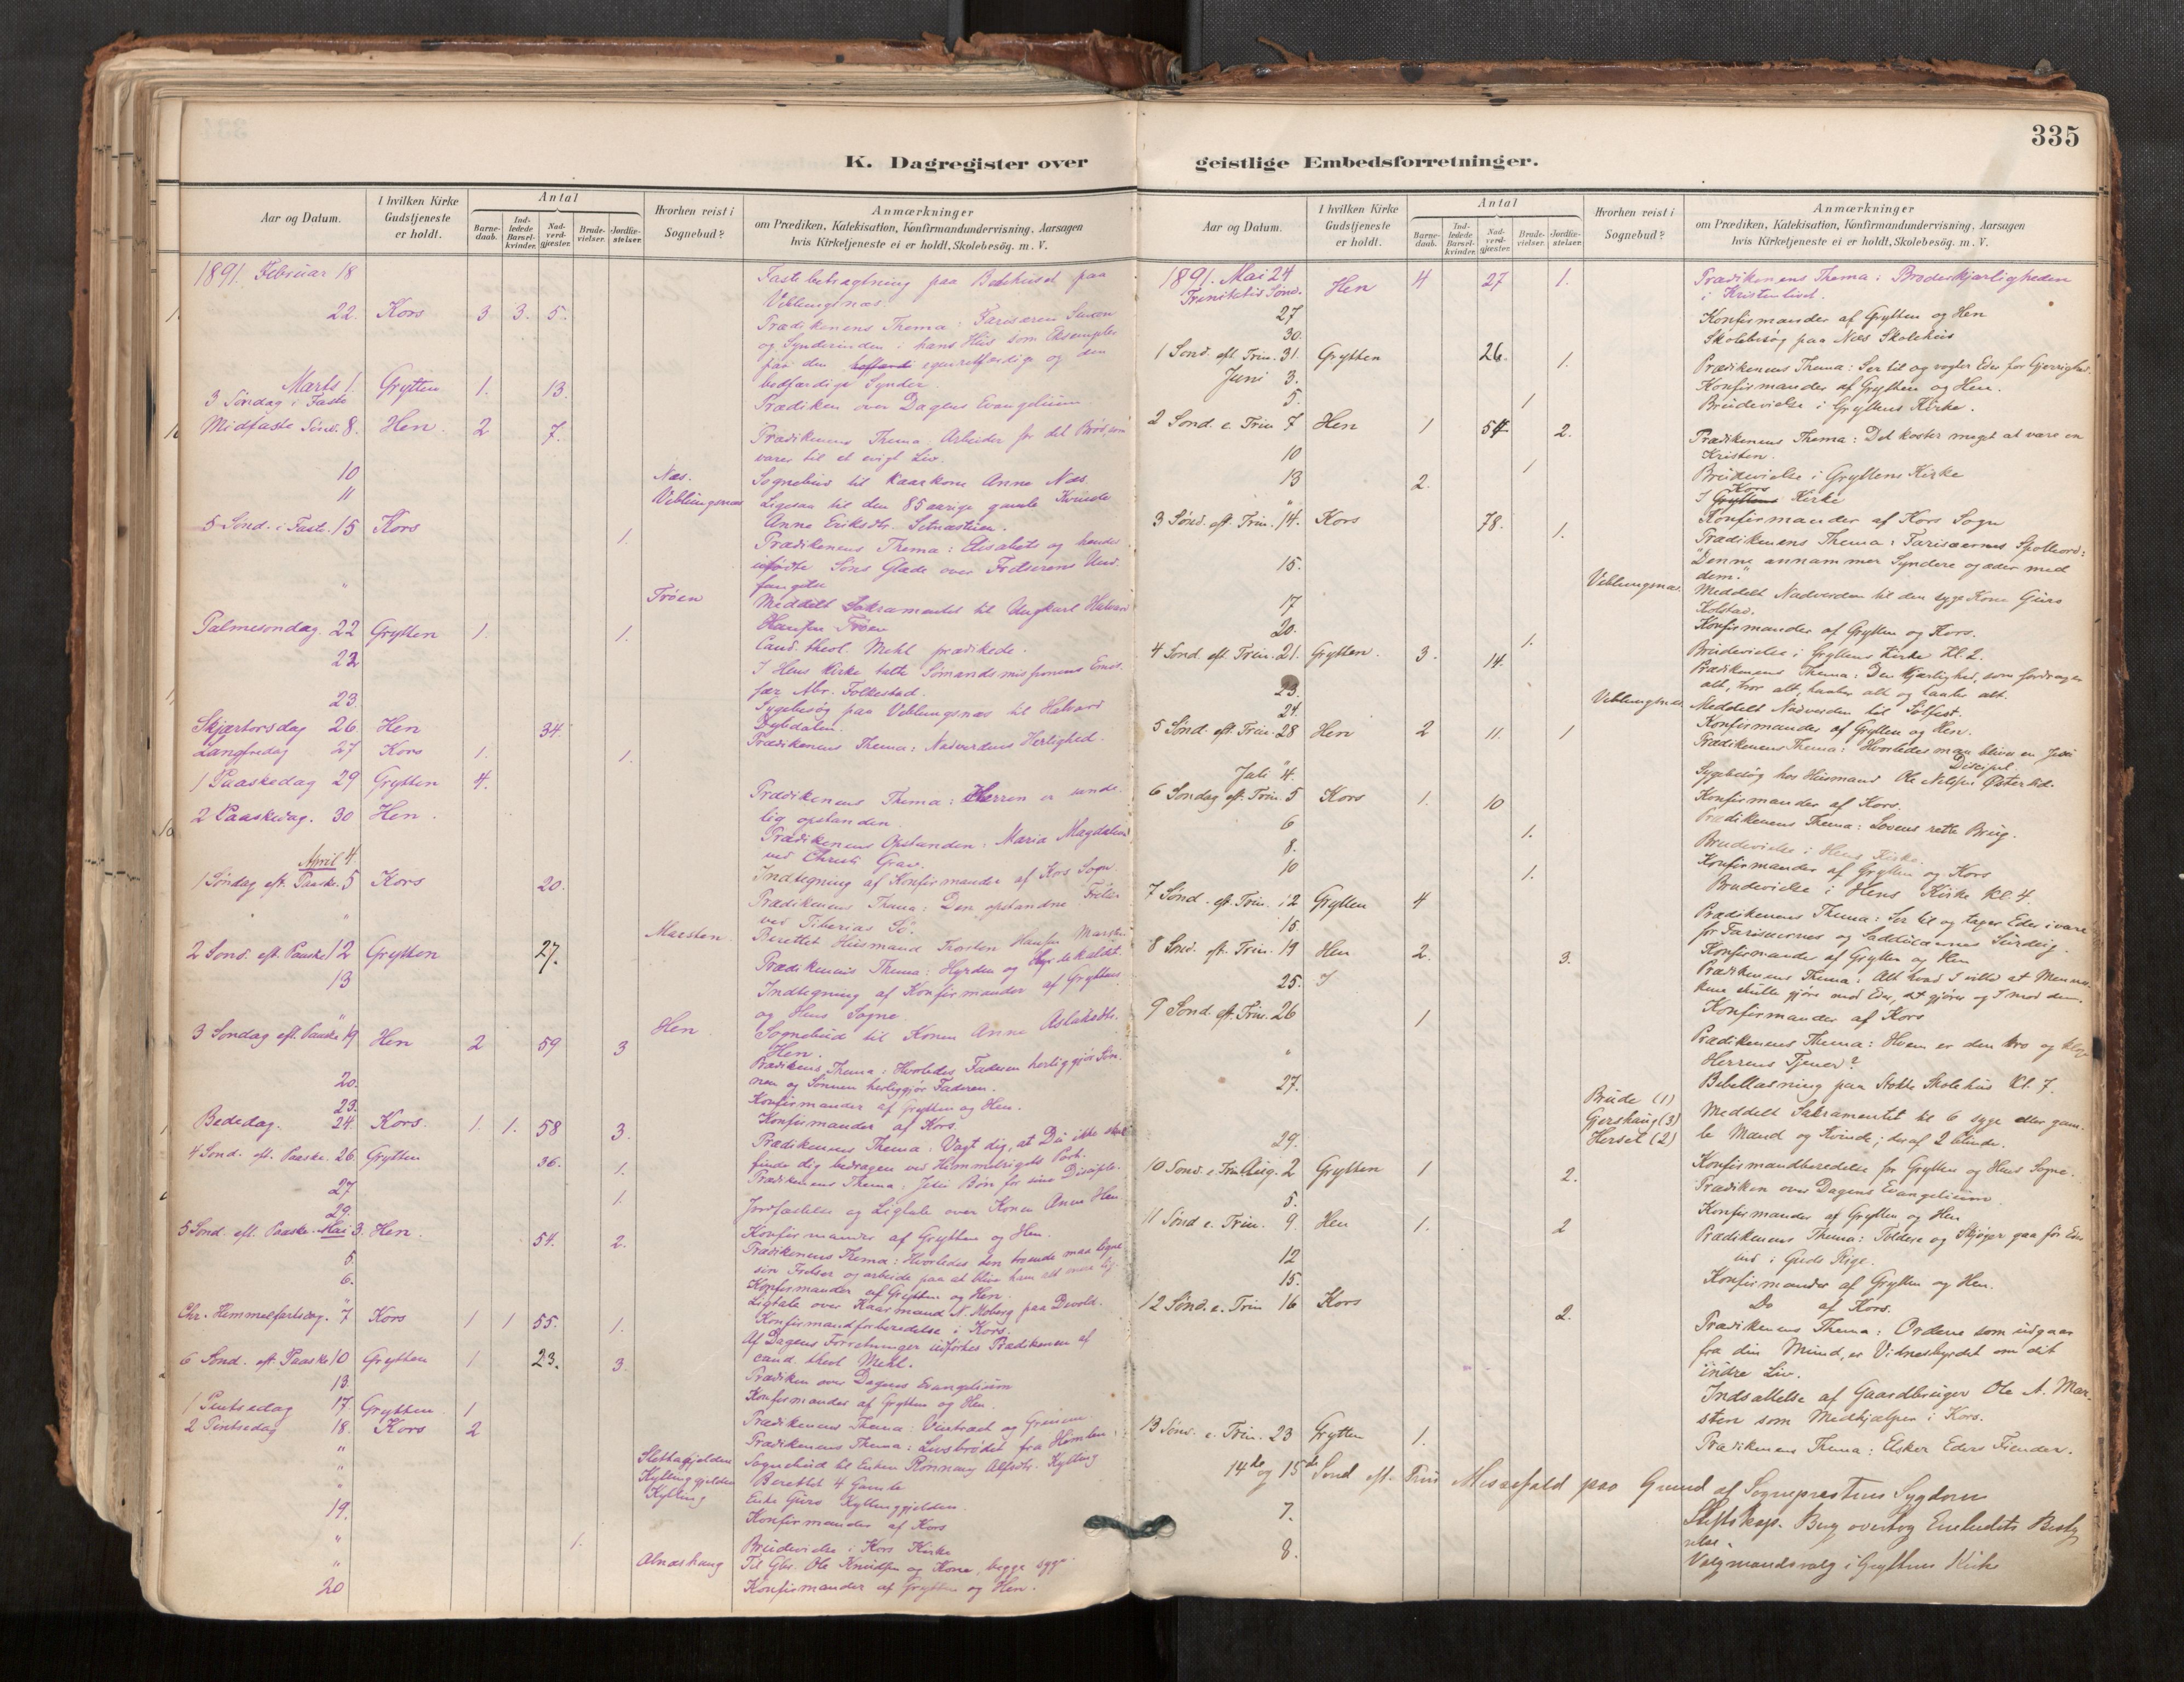 335
K. Dagregister over geistlige Embedsforretninger.
Aar og Datum.
I hvilken Kirke Gudstjeneste er holdt.
Antal
Barnedaab.
Indledede Barselkvinder.
Nadverdgjester.
Brudevielser.
Jordfæstelser.
Hvorhen reist i Sognebud?
Anmærkninger
om Prædiken, Katekisation, Konfirmandundervisning, Aarsagen
hvis Kirketjeneste ei er holdt, Skolebesög. m. V.
1891. Februar 18 Fastebetragtning paa Bedehuset paa
Veblungsnæs.
22. Kors 3 3. 5. Prædikenens Thema: Farisæeren Simon
og Synderinden i hans Hus som Eksempler
paa den egenretfærdige og den
bodfærdige Synder.
Marts 1. Grytten 1. 13. Prædiken over Dagens Evangelium.
3 Søndag i Faste
Midfaste Sønd. 8. Hen 2 7. Prædikenens Thema: Arbeider for det Brød, som
varer til et evigt Liv.
10 Næs. Sognebud til Kaarkone Anne Næs.
11 Veblungsnæs Ligesaa til den 85 aarige gamle Kvinde
Anne Eriksdtr. Setnæstuen.
5 Sønd. i Faste. 15 Kors 1. Prædikenens Thema: Elisabets og hendes
ufødte Søns Glæde over Frelserens Und-
fangelse
" Trøen Meddelt Sakramentet til Ungkarl Halvard
Hansen Trøen
Palmesøndag. 22 Grytten 1. 1. Cand. theol. Mehl prædikede.
22 I Hens Kirke talte Sømandsmissionens Emis-
sær Abr. Folkestad.
23. Sygebesøg paa Veblungsnæs til Halvard
Dybdalen.
Skjærtorsdag 26. Hen 34. Prædikenens Thema: Nadverdens Herlighed.
Langfredag 27 Kors 1. 1.
1 Paaskedag 29 Grytten 4. Prædikenens Thema: Herren er sande-
lig opstanden.
2 Paaskedag. 30 Hen. Prædikenens Opstanden: Maria Magdalena
ved Christi Grav.
April 4. Indtegning af Konfirmander af Kors Sogn
1 Søndag eft. Paaske. 5 Kors 20. Prædikenens Thema: Den opstandne Frelser
ved Tiberias Sø.
" Marsten Berettet Husmand Thorsten Hansen Marsten
2 Sønd. eft. Paaske 12 Grytten 27. Prædikenens Thema: Hyrden og Hyrdekaldet.
13 Indtegning af Konfirmander af Gryttens
og Hens Sogne.
" Hen Sognebud til Konen Anne Aslaksdtr.
Hen.
3 Søndag eft. Paaske 19 Hen 2 59 3 Prædikens Thema: Hvorledes Faderen herliggjør Søn-
nen og Sønnen herliggjør Faderen.
20. Konfirmander af Grytten og Hen.
23. Konfirmander af Kors.
Bededag. 24. Kors. 1. 1. 58 3. Prædikenens Thema: Vogt dig, at Du ikke skal
finde dig bedragen ved Himmelrigets Port.
4 Sønd. eft. Paaske. 26. Grytten 36. 1. Prædikenens Thema: Jesu Bøn for sine Disciple.
27 1. Jordfæstelse og Ligtale over Konen Anne Hen
29. Konfirmander af Grytten og Hen.
5 Sønd. eft. Paaske. Mai 3. Hen. 54. 2. Prædikenens Thema: Hvorledes den troende maa ligne
sin Frelser og arbeide paa at blive ham alt mere lig.
5. Konfirmander af Grytten og Hen.
6. Ligtale over Kaarmand N. Moberg paa Devold.
" Konfirmandforberedelse i Kors.
Chr. Himmelfartsdag. 7 Kors 1 1 55. 1. Af Dagens Forretninger udførtes Prædikenen af
cand. theol Mehl.
6 Sønd. eft. Paaske 10 Grytten 1 23. 3. Prædiken over Dagens Evangelium
13. Konfirmander af Grytten og Hen.
1 Pintsedag 17. Grytten 1 Prædikenens Thema: Vintræet og Grenene.
2 Pintsedag 18. Kors 2 Prædikenens Thema: Livsbrødet fra Himlen.
" Slettagjelden Sognebud til Enken Rønnaug Alfsdtr. Kylling
" Kyllinggjelden Berettet 4 Gamle
" Kylling Enke Guro Kyllinggjelden.
19. Konfirmander af Kors
" 1. Brudevielse i Kors Kirke
" Alnæshaug Til Gbr. Ole Knudsen og Kone, begge syge
20 Konfirmander af Grytten og Hen.
Aar og Datum.
I hvilken Kirke Gudstjeneste er holdt.
Antal
Barnedaab.
Indledede Barselkvinder.
Nadverdgjester.
Brudevielser.
Jordfæstelser.
Hvorhen reist i Sognebud?
Anmærkninger
om Prædiken, Katekisation, Konfirmandundervisning, Aarsagen
hvis Kirketjeneste ei er holdt, Skolebesög. m. V.
1891. Mai 24 Hen 4 27 1. Prædikenens Thema: Broderkjærligheden
Trinitatis Sønd. i Kristenlivet.
27 Konfirmander af Grytten og Hen
30. Skolebesøg paa Næs Skolehus
1 Sønd. eft. Trin. 31. Grytten 26. 1. Prædikenens Thema: Ser til og vogter Eder for Gjerrighed.
Juni 3. Konfirmander af Grytten og Hen.
5. 1 Brudevielse i Gryttens Kirke.
2 Sønd. e. Trin 7 Hen 1 54 2. Prædikenens Thema: Det koster meget at være en
Kristen.
10 1 Brudevielse i Gryttens Kirke
13 2. I Gryttens Kors Kirke
" Konfirmander af Kors Sogn
3 Sønd. eft. Trin. 14. Kors 78. 1. Prædikenens Thema: Farisæernes Spotteord:
"Denne annammer Syndere og æder med
dem."
15. Veblungsnæs. Meddelt Nadverden til den syge Kone Guro
Kolstad.
17 Konfirmander af Grytten og Kors.
20. 1. Brudevielse i Gryttens Kirke Kl. 2.
4 Sønd. eft. Trin. 21. Grytten. 3. 14. Prædikenens Thema: Den Kjærlighed, som fordrager
alt, tror alt, haaber alt og taaler alt.
23. Veblungsnæs Meddelt Nadverden til Solfest.
24. Konfirmander af Grytten og Hen.
5 Sønd. eft. Trin. 28 Hen 2 11. 1 Prædikenens Thema: Hvorledes man bliver en Jesu
Discipel.
" Sygebesøg hos Husmand Ole Nilsen Østerlid.
Juli 4. Konfirmander af Kors.
6 Søndag eft. Trin. 5 Kors 1. 10 Prædikenens Thema: Lovens rette Brug.
6 1. Brudevielse i Hens Kirke.
8. Konfirmander af Grytten og Kors
10 1. Brudevielse i Hens Kirke Kl. 4.
7 Sønd. eft. Trin. 12 Grytten 4 Prædikenens Thema: Ser til og tager Eder i vare
for Farisæernes og Sadducæernes Surdeig.
15. Konfirmander af Grytten og Hen
8 Sønd. eft. Trin. 19 Hen 2. 3. Prædikenens Thema: Alt hvad I ville at Mennes-
kene skulle gjøre mod Eder, det gjører og I mod dem.
25. Konfirmander af Kors
9 Sønd. eft. Trin. 26 1 Prædikenens Thema: Hvem er den tro og kloge
Herrens Tjener?
" Bibellæsning paa Stokke Skolehus Kl. 7.
27. Brude (1) Gjershaug (3) Herset (2) Meddelt Sakramentet til 6 syge eller gam-
le Mænd og Kvinde; deraf 2 blinde.
29. Konfirmandberedelse for Grytten og Hens Sogne.
10 Sønd. e. Trin. Aug. 2 Grytten 1 2. Prædiken over Dagens Evangelium.
5. Konfirmander af Grytten og Hen
11 Sønd e. Trin. 9. Hen 1. 2 Prædikenens Thema: Toldere og Skjøger gaa før Eder
ind i Guds Rige.
12 Konfirmander af Grytten og Hen.
15. Do af Kors.
12 Sønd. e. Trin 16 Kors 2. Prædikenens Thema: Ordene som udgaar
fra din Mund, er Vidnesbyrdet om dit
indre Liv.
Indsættelse af Gaardbruger Ole A. Mar-
sten som Medhjælper i Kors.
13 Sønd. e. Trin. 23 Grytten 1. Prædikenens Thema: Elsker Eders Fiender.
14de og 15de Sønd eft. Trin Messefald paa Grund af Sogneprestens Sygdom
7. Stiftskap. Berg overtog Embedets Besty-
relse.
8. Valgmandsvalg i Gryttens Kirke